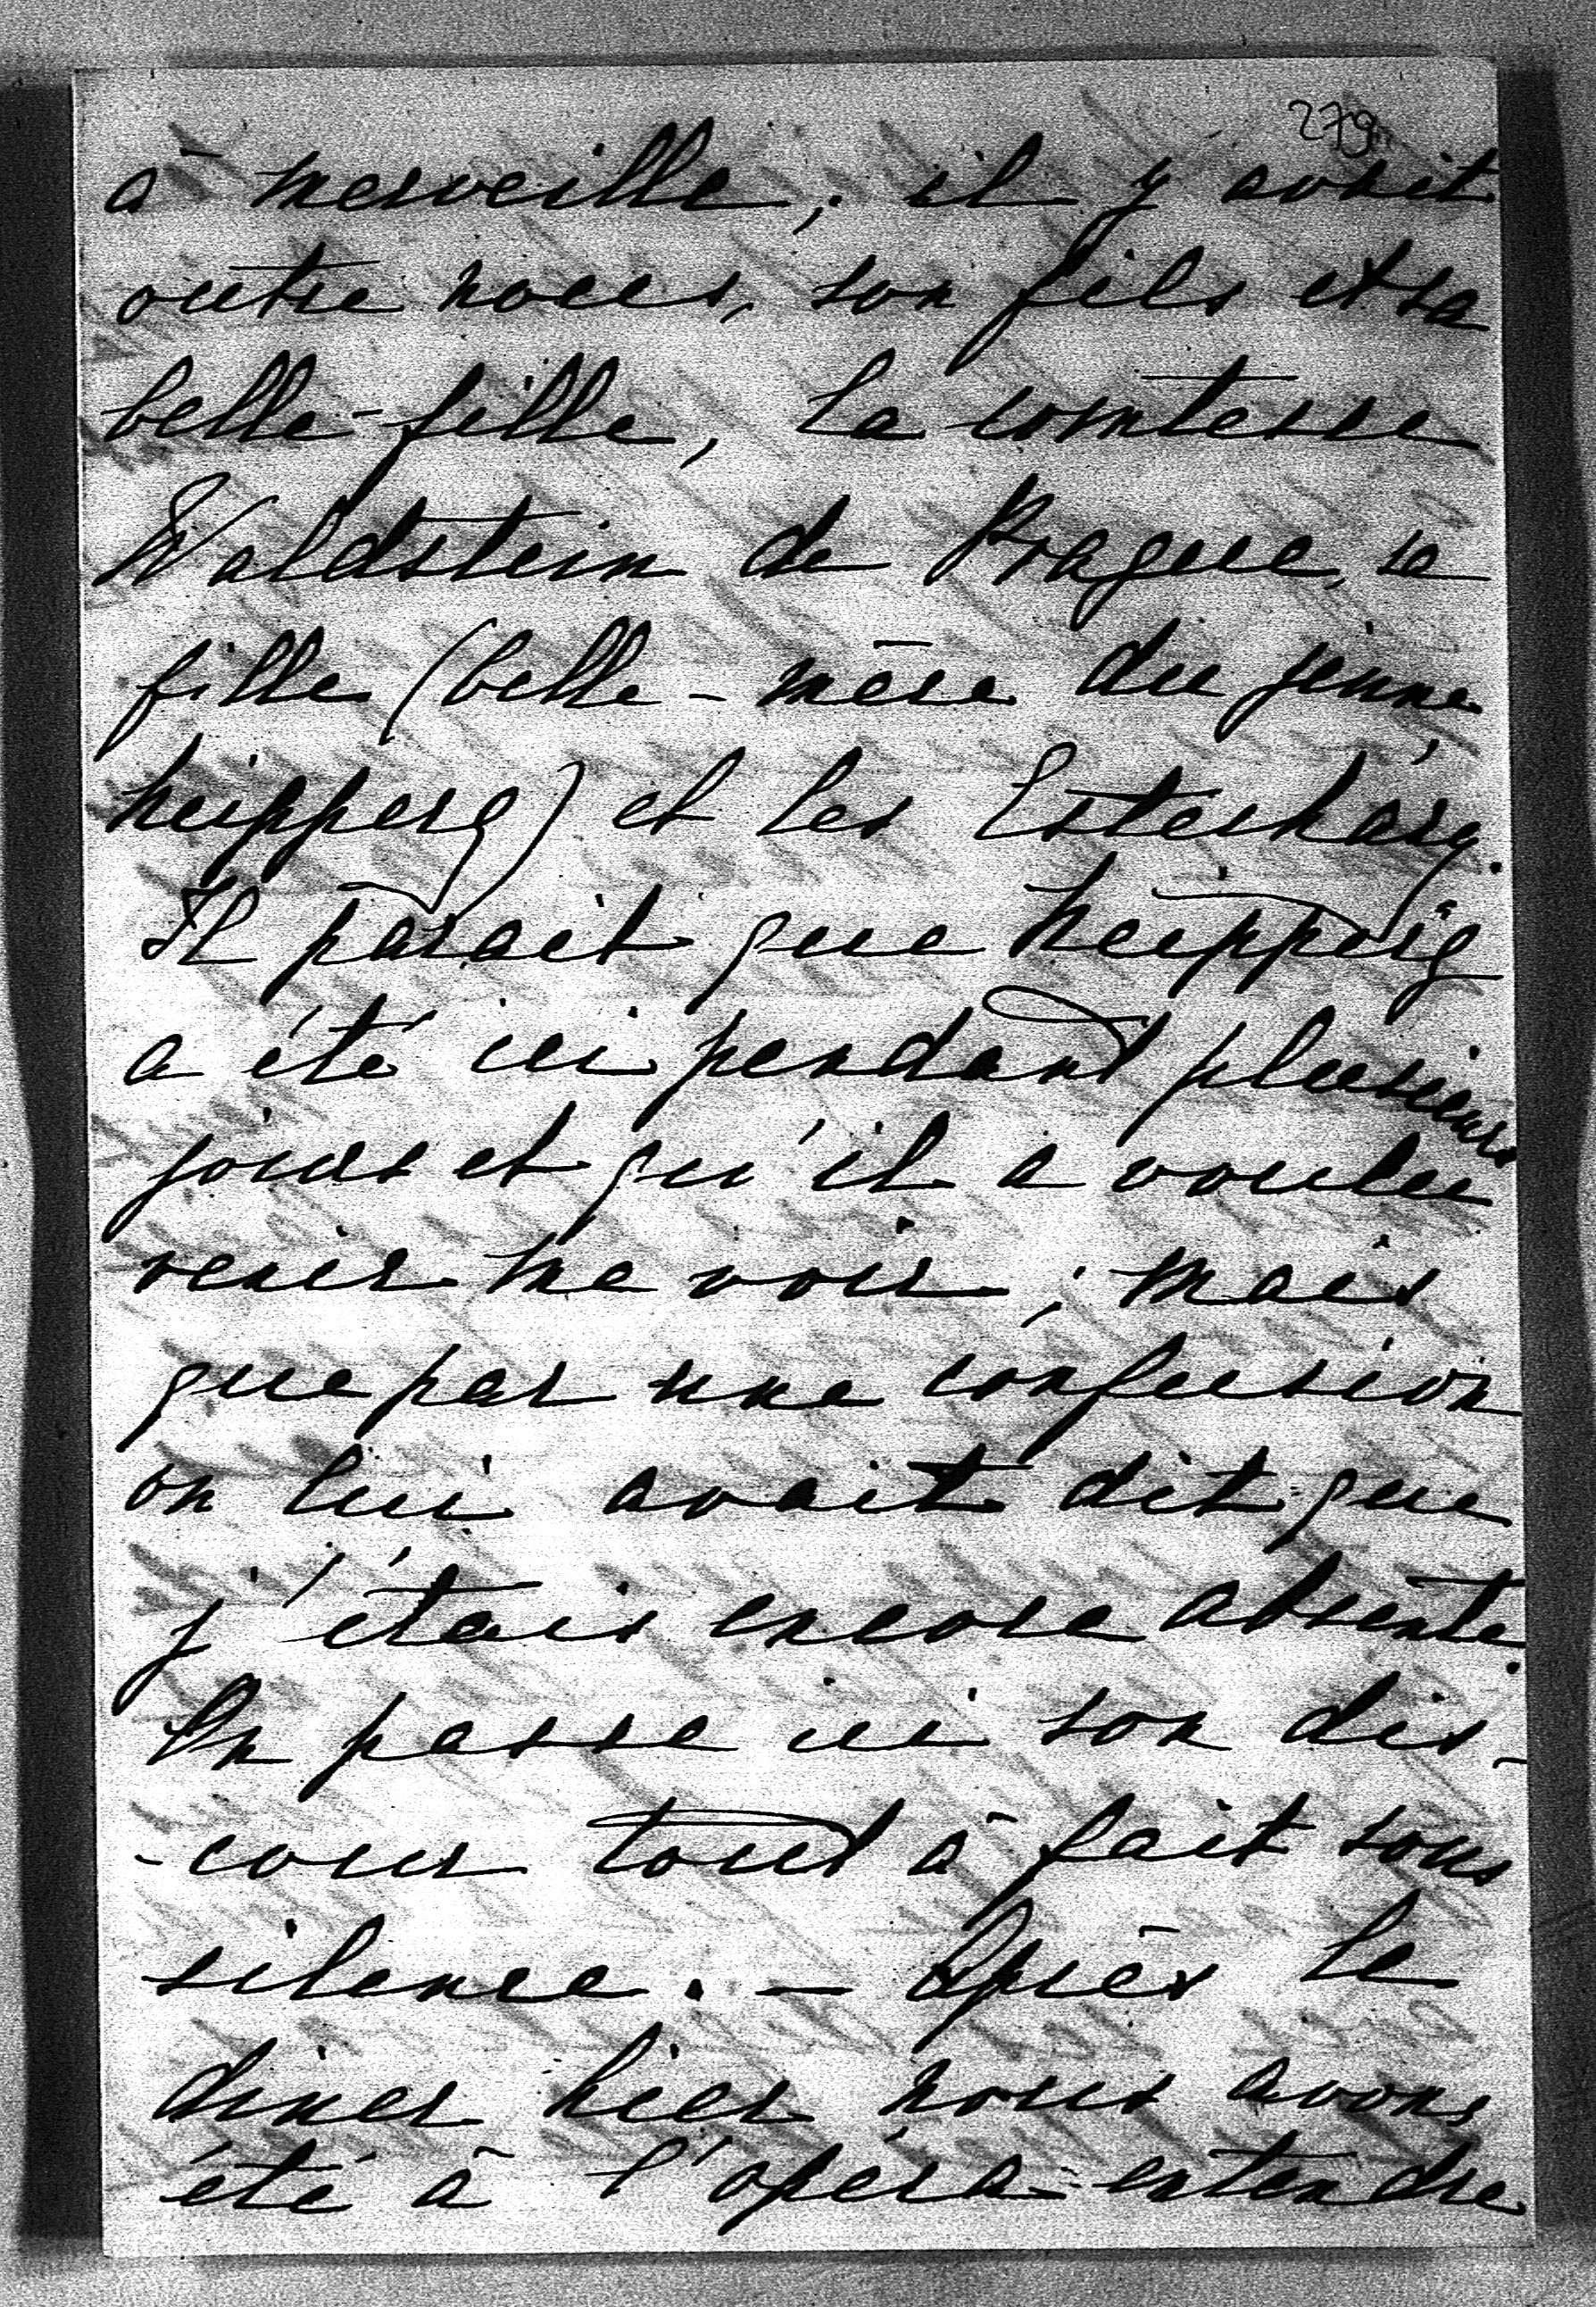 279
à merveille; il y avait
outre nous, son fils et sa
belle-fille, la comtesse
Waldstein de Prague, sa
fille (belle-mère du jeune
Neipperg) et les Esterházy.
Il paraît que Neipperg
a été ici pendant plusieurs
jours et qu'il a voulu
venir me voir; mais
que par une confusion
on lui avait dit que
j'étais encore absente.
On passe ici son dis-
-cours tout à fait sous
silence. – Après le
diner hier nous avons
été à l'opéra entendre